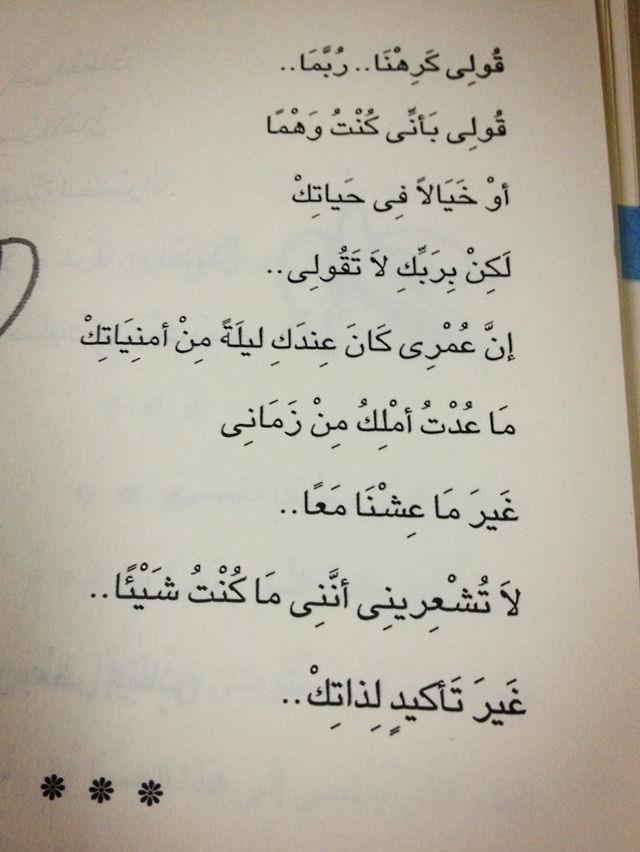 قُولِى كَرِهْنَا.. رُبَّمَا..
قُولِى بَأنِّى كُنْتُ وَهْمًا
أوْ خَيَالاً فِى حَياتِكْ
لَكِنْ بِرَبِّكِ لاَ تَقُولِى..
إنَّ عُمْرِى كَانَ عِندَكِ ليلَةً مِنْ أمنِيَاتِكْ
مَا عُدْتُ أمْلِكُ مِنْ زَمَانِى
غَيرَ مَا عِشْنَا مَعًا..
لاَ تُشْعِرِينِى أنَّنِى مَا كُنْتُ شَيْئًا..
غَيرَ تَأكيدٍ لِذاتِكْ..
* * *